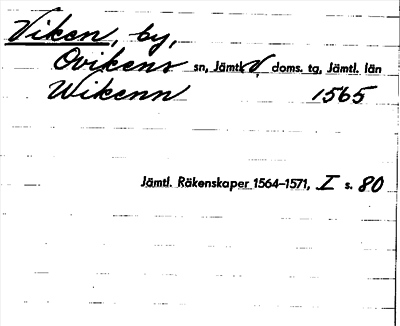 Viken, by,
Ovikens sn, Jämtl. V. doms. tg, Jämtl. län
Wikenn 1565
Jämtl. Räkenskaper 1564–1571, I s. 80